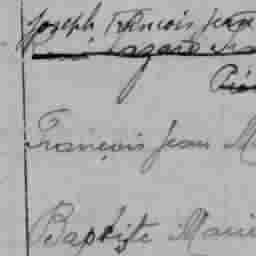 Joseph François Jean
Lazare
François Jean M
Baptiste Marie